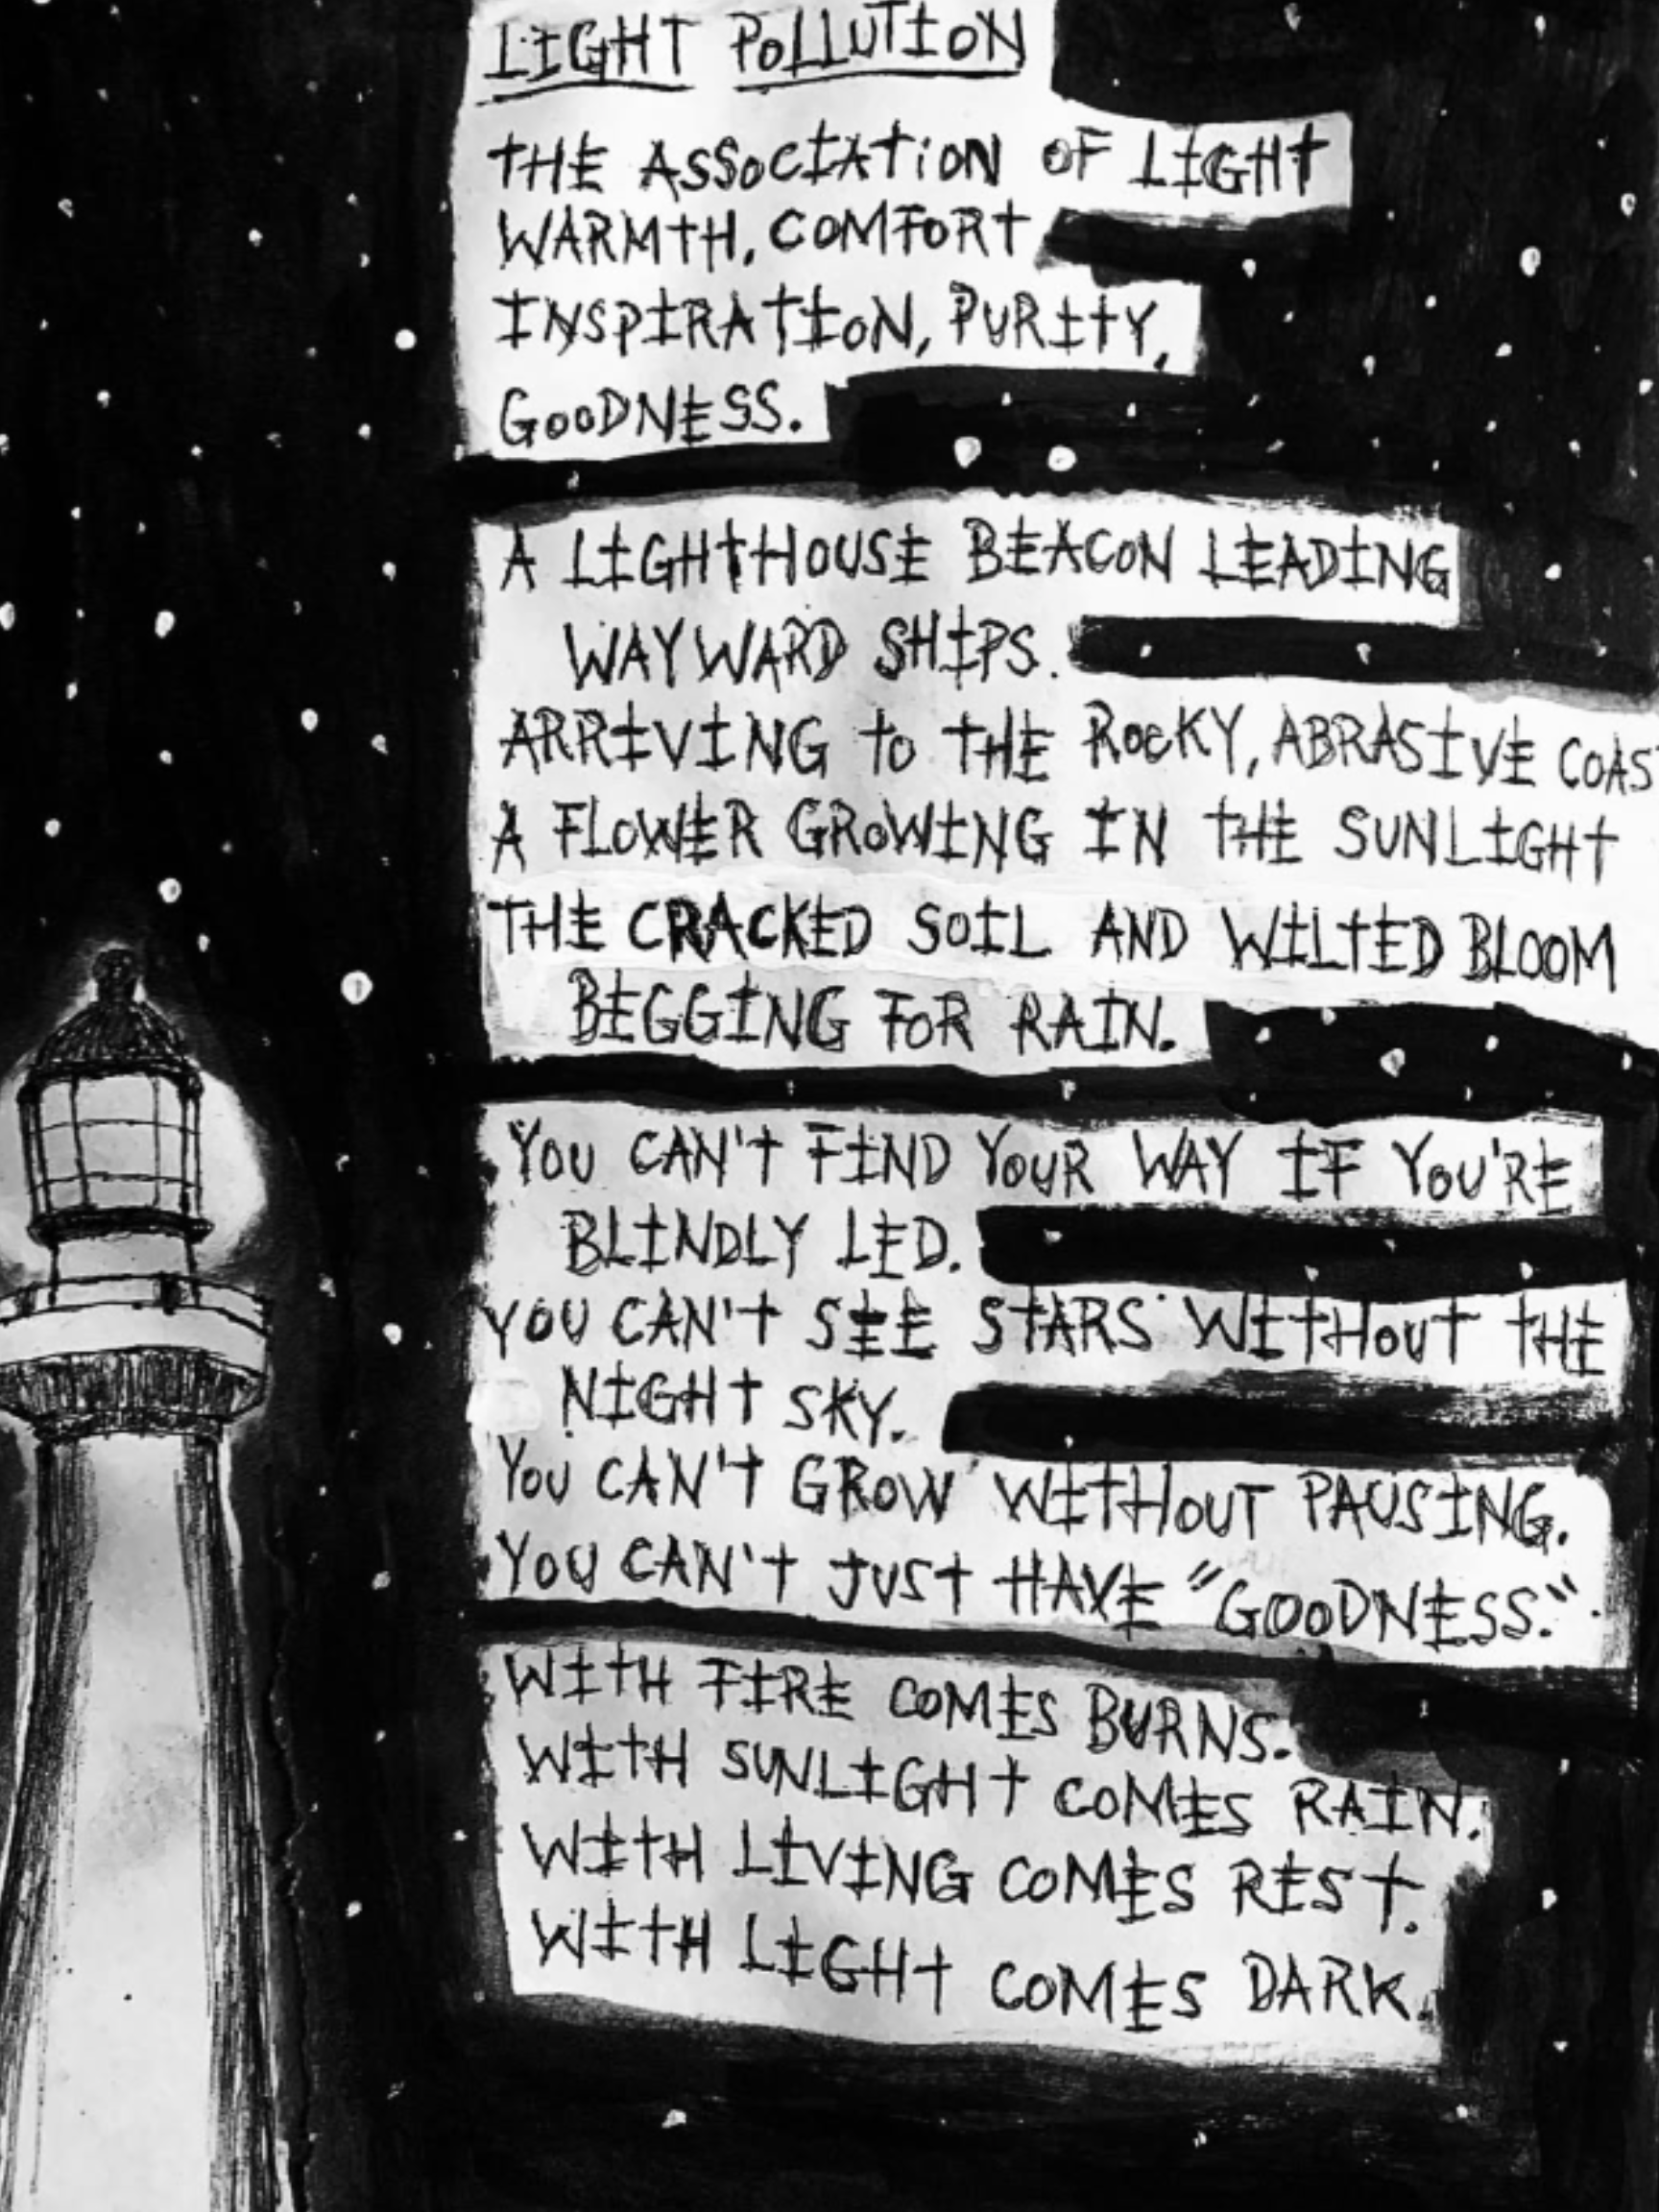 LIGHT POLLUTION
THE ASSOCIATION OF LIGHT
WARMTH, COMFORT
INSPIRATION, PURITY,
GOODNESS.
A LIGHTHOUSE BEACON LEADING
WAYWARD SHIPS.
ARRIVING TO THE ROCKY, ABRASIVE COAS
A FLOWER GROWING IN THE SUNLIGHT
THE CRACKED SOIL AND WILTED BLOOM
BEGGING FOR RAIN.
YOU CAN'T FIND YOUR WAY IF YOU'RE
BLINDLY LED.
YOU CAN'T SEE STARS WITHOUT THE
NIGHT SKY.
YOU CAN'T GROW WITHOUT PAUSING.
YOU CAN'T JUST HAVE "GOODNESS."
WITH FIRE COMES BURNS.
WITH SUNLIGHT COMES RAIN.
WITH LIVING COMES REST.
WITH LIGHT COMES DARK.